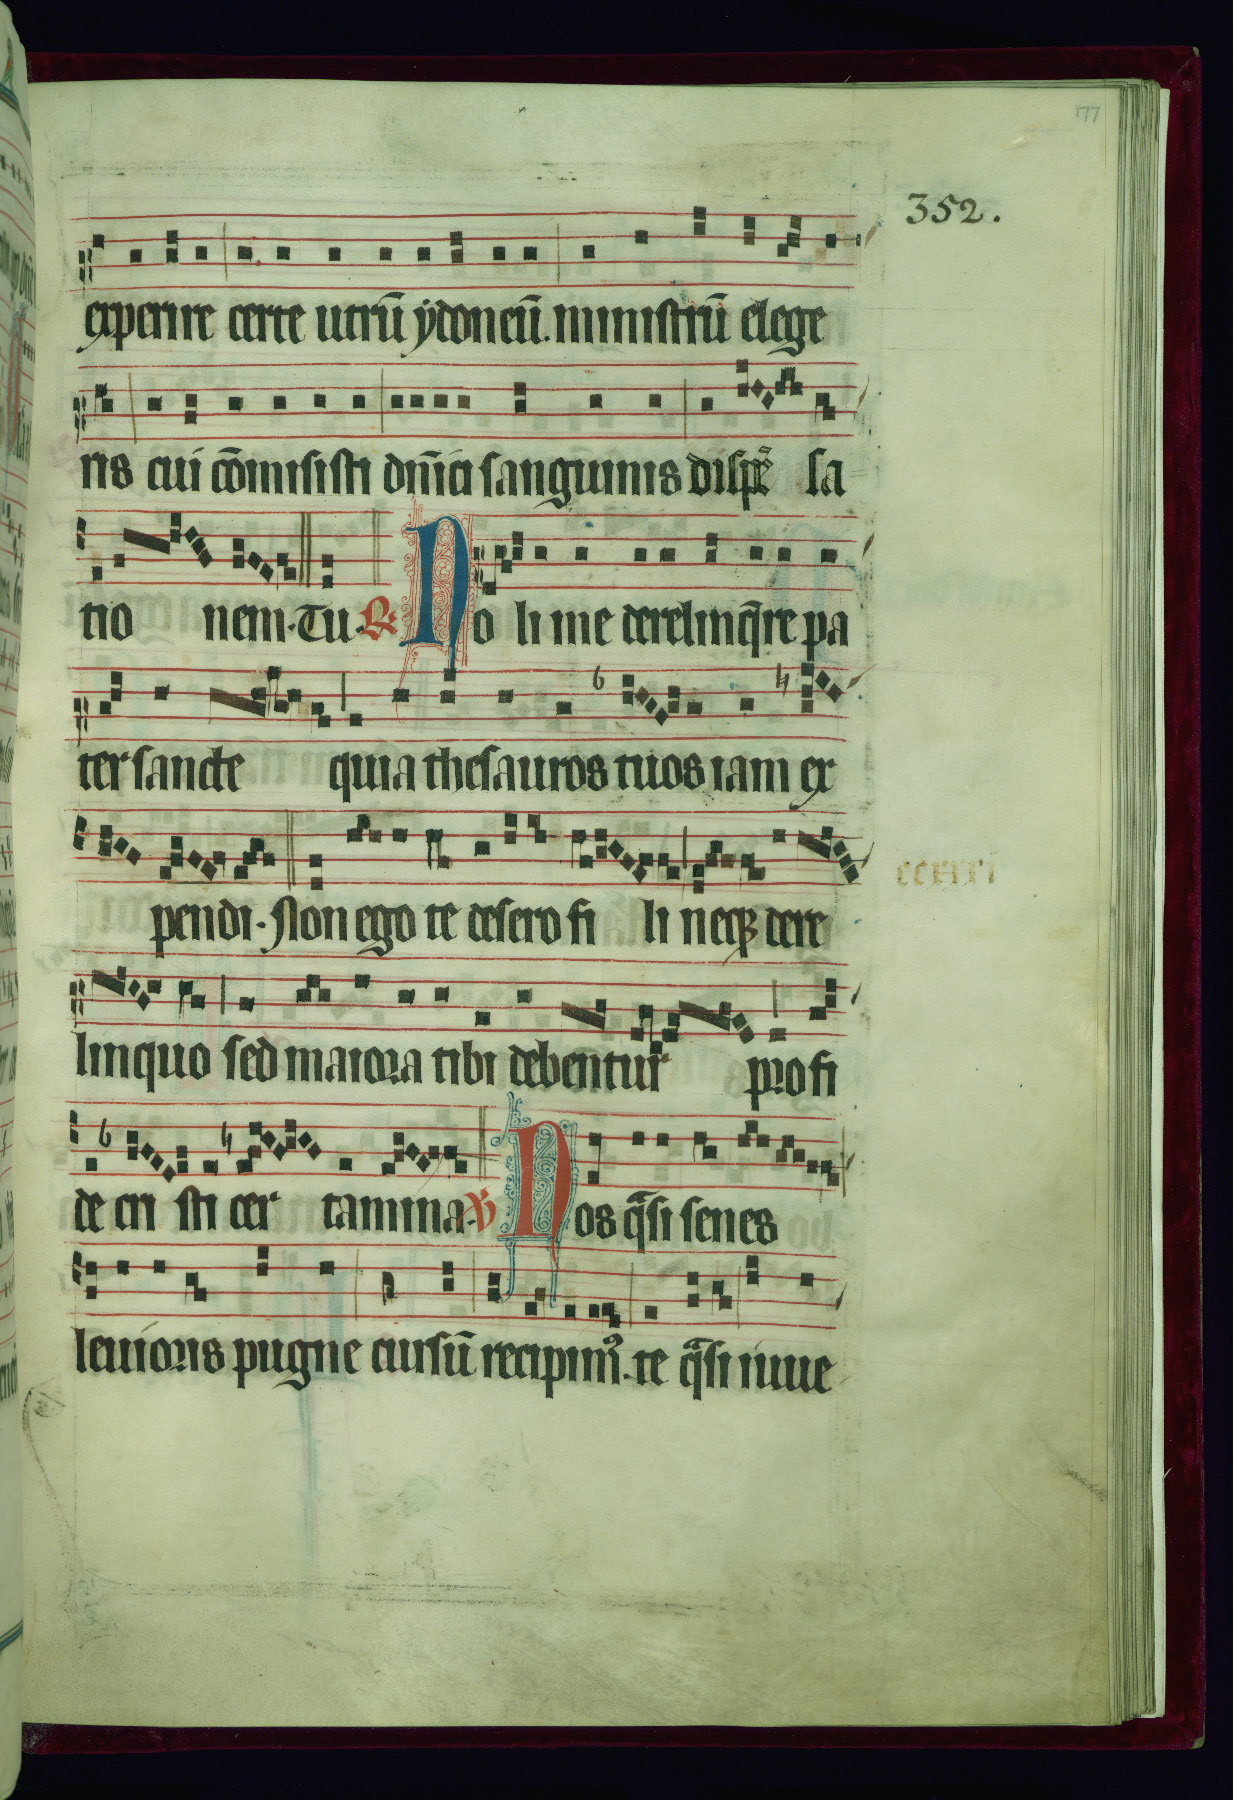 177
352.
experire certe utrū ydoneū. ministrū elege
ris cui cōmisisti dn̄ici sanguinis dispē sa
tio nem. Tu. R. No li me derelinq̄re pa
ter sancte quia thesauros tuos iam ex
pendi. Non ego te desero fi li neqꝫ dere
linquo sed maiora tibi debentur pro fi
de cri sti cer tamina. V Nos q̄si senes
levioris pugne cursū recipimꝰ. te q̄si iuve